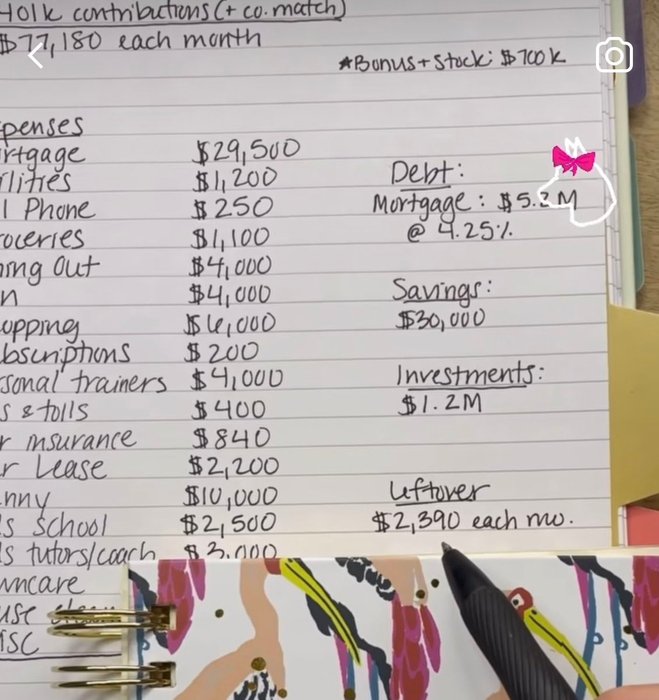 401k contributions (+ co. match)
$77,180 each month
*Bonus + Stock: $700k
penses
rtgage $29,500
ilities $1,200
l Phone $250
roceries $1,100
ning Out $4,000
n $4,000
opping $6,000
bscriptions $200
rsonal trainers $4,000
s & tolls $400
r insurance $840
r Lease $2,200
nny $10,000
s school $2,500
s tutors/coach $3,000
wncare
use
isc
Debt:
Mortgage: $5.2M
@ 4.25%
Savings:
$30,000
Investments:
$1.2M
Leftover
$2,390 each mo.